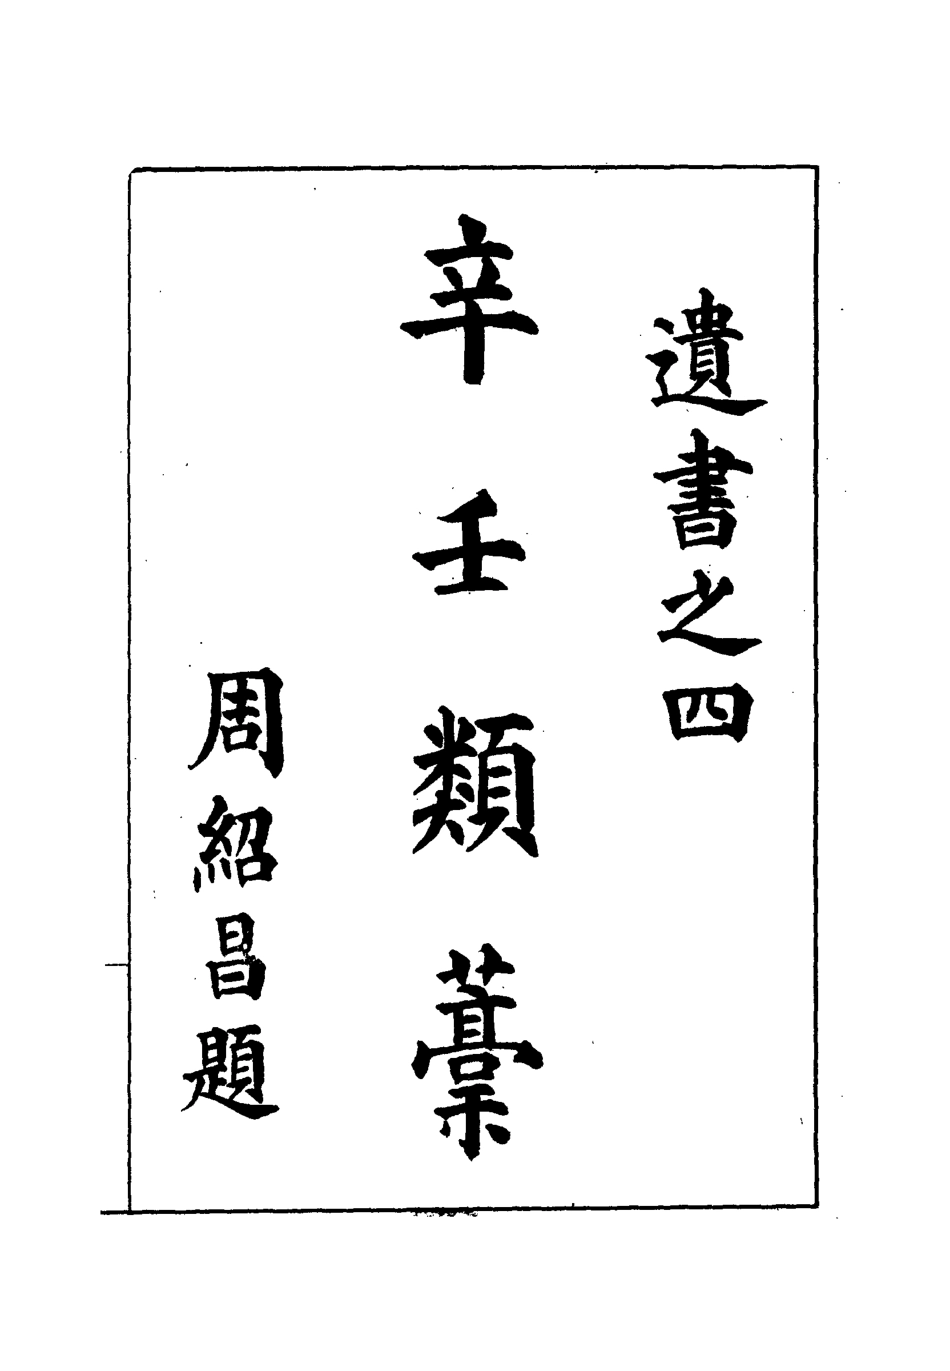 遺書之四
辛壬類藁
周紹昌題